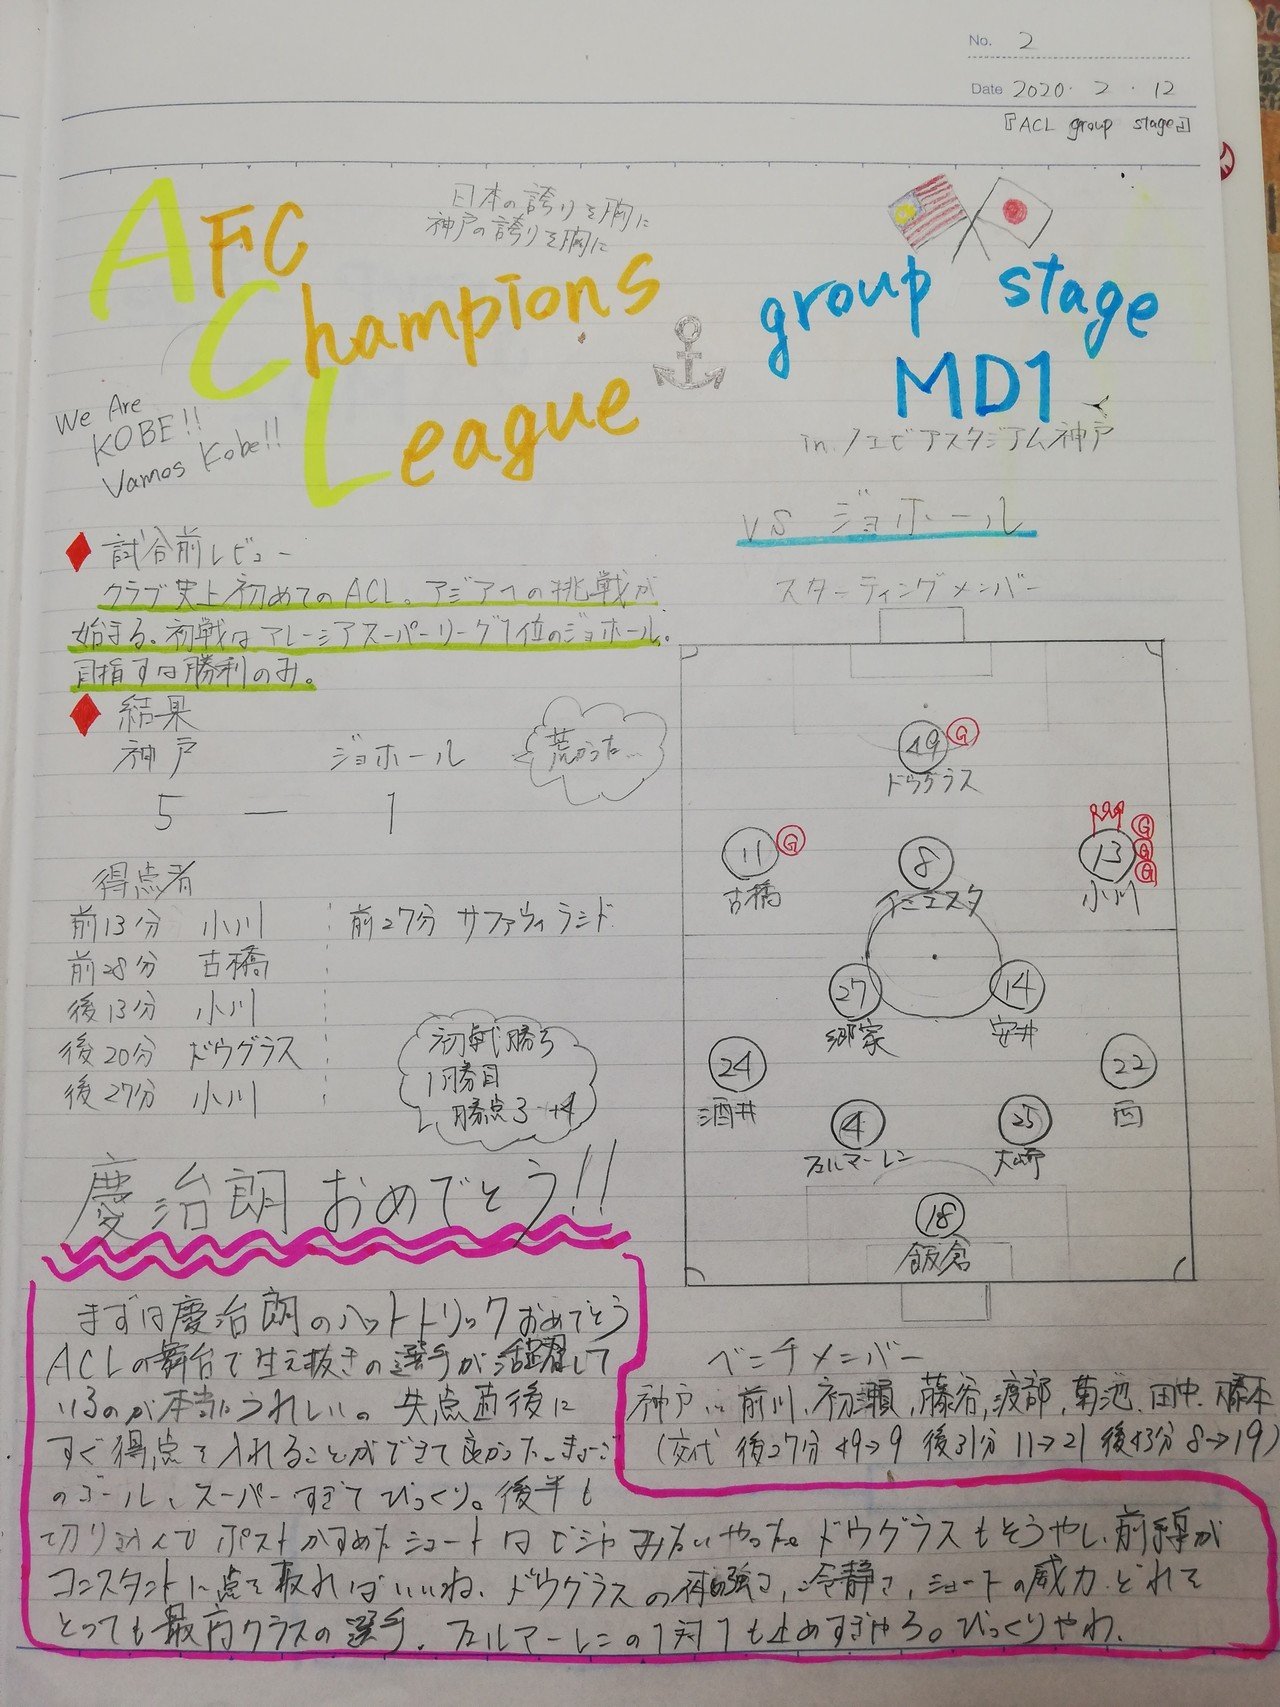 No. 2
Date 2020・2・12
『ACL group stage』
日本の誇りを胸に
神戸の誇りを胸に
AFC
Champions
League
group stage
MD1
in ノエビアスタジアム神戸
We Are
KOBE!!
Vamos Kobe!!
vs ジョホール
試合前レビュー
クラブ史上初めてのACL。アジアへの挑戦が
始まる。初戦はマレーシアスーパーリーグ1位のジョホール。
目指すは勝利のみ。
結果
神戸 ジョホール
5 — 1
荒かった…
得点者
前13分 小川 前27分 サファウィラシド
前28分 古橋
後13分 小川
後20分 ドウグラス
後27分 小川
初戦勝ち
1勝目
勝点3 +4
スターティングメンバー
49 G
ドウグラス
11 G
古橋
8
イニエスタ
13 G G G
小川
27
郷家
14
安井
24
酒井
22
西
4
フェルマーレン
25
大崎
18
飯倉
慶治朗おめでとう!!
まずは慶治朗のハットトリックおめでとう
ACLの舞台で生え抜きの選手が活躍して
いるのが本当にうれしい。失点直後に
すぐ得点を入れることができて良かった。きょーご
のゴール、スーパーすぎてびっくり。後半も
切り込んでポストかすめたシュートはビジャみたいやった。ドウグラスもそうやし、前線が
コンスタントに点を取ればいいね。ドウグラスの体の強さ、冷静さ、シュートの威力、どれを
とっても最高クラスの選手。フェルマーレンの1対1も止めすぎやろ。びっくりやわ。
ベンチメンバー
神戸… 前川、初瀬、藤谷、渡部、菊池、田中、藤本
(交代 後27分 49→9 後31分 11→21 後43分 8→19)